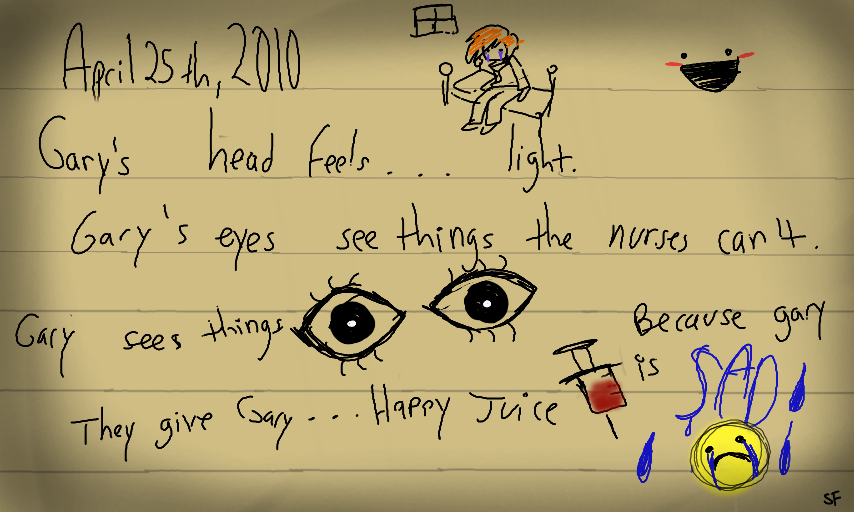 April 25th, 2010
Gary's head feels.... light.
Gary's eyes see things the nurses can4.
Gary sees things
Because gary
is SAD
They give Gary... Happy Juice
SF